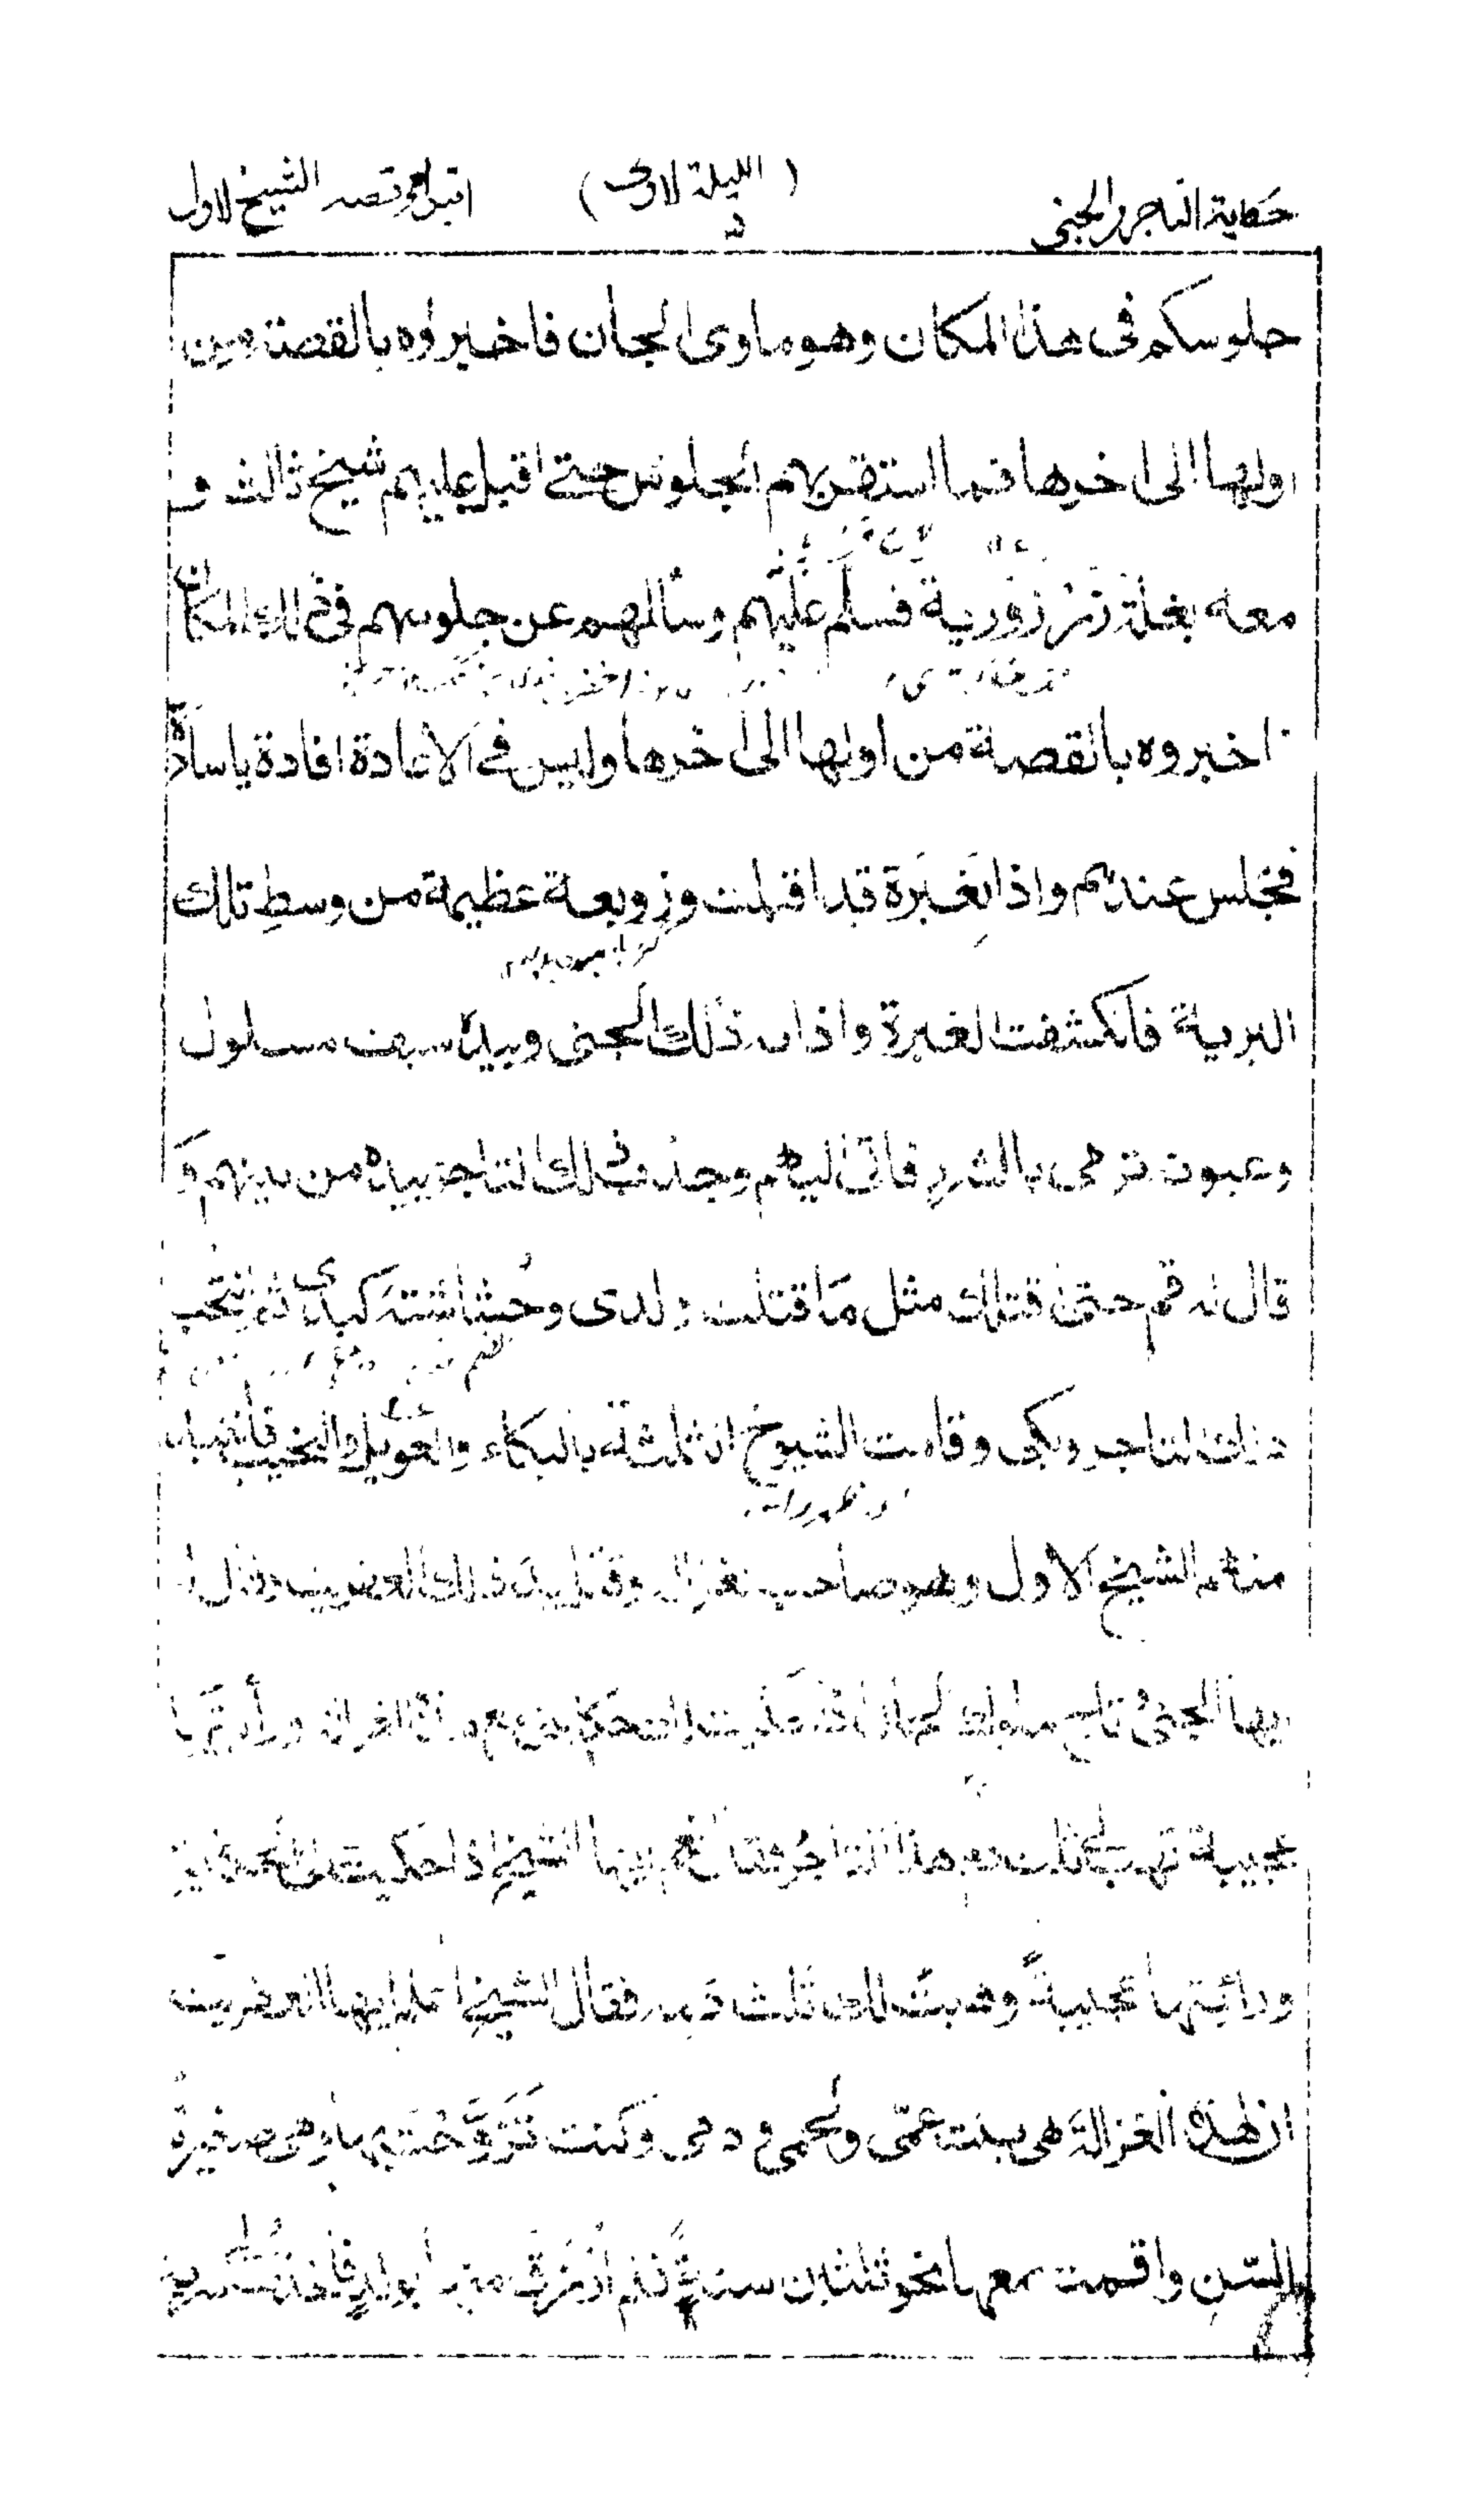 حكاية التاجر والجني (الليلة الاولى) قصة الشيخ الاول
جلوسكم فى هذا المكان وهو ماوى الجان فاخبروه بالقصة من
اولها الى اخرها فما استقر بهم الجلوس حتى اقبل عليهم شيخ ثالث و
معه بغلة زرزورية فسلم عليهم وسألهم عن جلوسهم فى ذلك المكان
اخبروه بالقصة من اولها الى اخرها وليس فى الاعادة افادة ياسادة
فجلس عندهم واذا بغبرة قد اقبلت وزوبعة عظيمة من وسط تلك
البرية فانكشفت الغبرة واذا بذلك الجنى وبيده سيف مسلول
وعيون ترمى بالشرر فاتى اليهم وجذب ذلك التاجر بيده من بينهم وَ
قال له قم حتى اقتلك مثل مَا قتلت ولدى وحُشاشتة كبدى ثم انتحب
ذلك التاجر وبكى وقامت الشيوخ الثلثة بالبكاء والعويل والنحيب فانتبه
منهم الشيخ الاول وهو صاحب الغزالة وقبّل يد ذلك العفريت وقال
ايها الجنىُّ وتاج ملوك الجان اذا حكيت لك حكايتى مع هذه الغزالة ورأيتها
عجيبة تهب لى ثلث دم هذا التاجر قال نعم ايها الشيخ اذا حكيت لى الحكاية
ورأيتها عجيبةً وهبتُ لك ثلث دمه فقال الشيخ اعلم ايها العفريت
ان هذه الغزالة هى بنت عمّى ولحمى و دمى وكنت تَزَوَّجْتُ بها وهى صغيرة
السّن واقمت معها نحو ثلثين سنةٍ فلم اُرْزَق منها بولدٍ فأخذتُ سرية